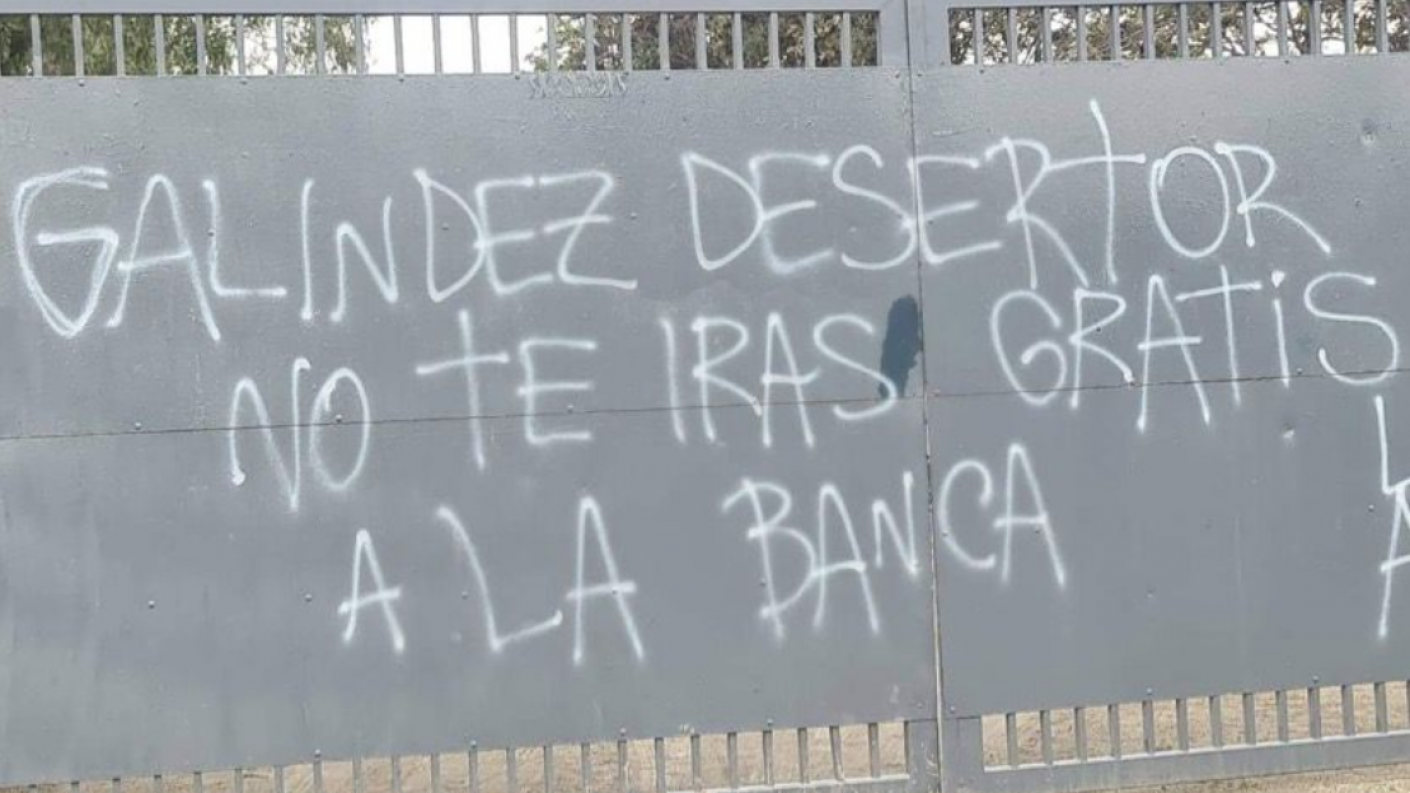 GALINDEZ DESERTOR
NO TE IRAS GRATiS
A LA BANCA